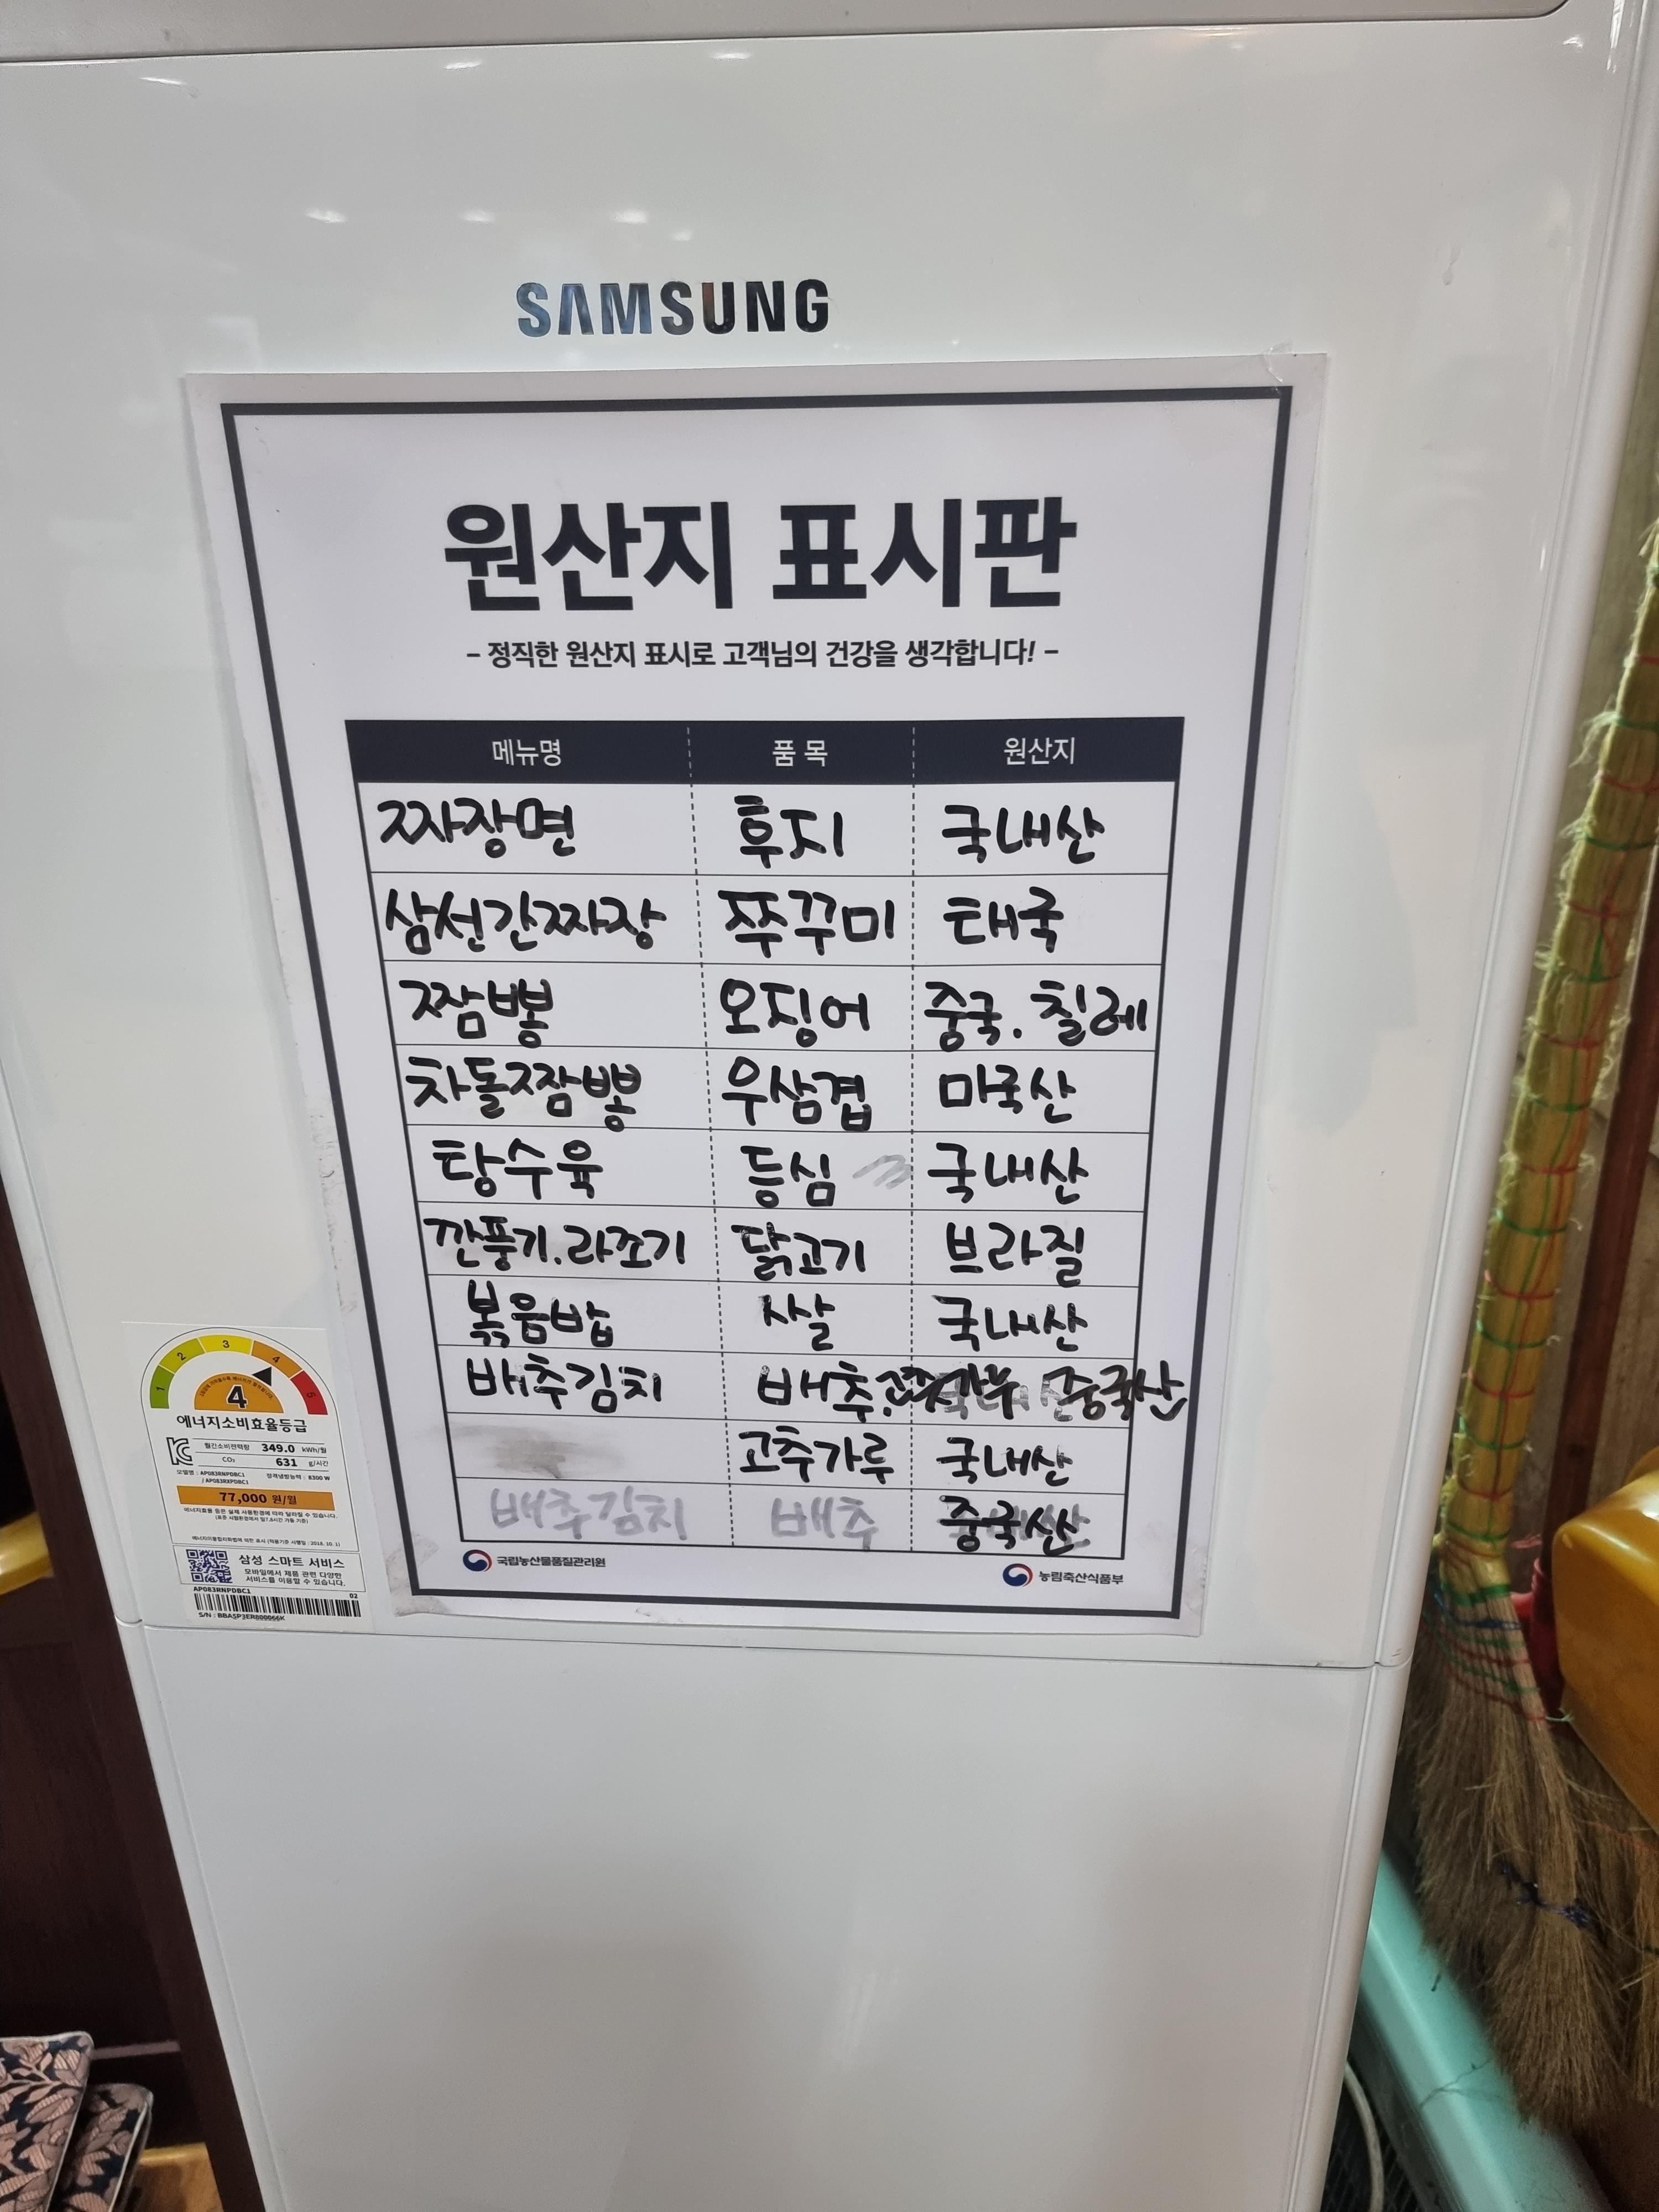 SAMSUNG
원산지 표시판
- 정직한 원산지 표시로 고객님의 건강을 생각합니다! -
메뉴명 품 목 원산지
짜장면 후지 국내산
삼선간짜장 쭈꾸미 태국
짬뽕 오징어 중국. 칠레
차돌짬뽕 우삼겹 미국산
탕수육 등심 국내산
깐풍기.라조기 닭고기 브라질
볶음밥 쌀 국내산
배추김치 배추. 중국산
고추가루 국내산
배추김치 배추 중국산
국립농산물품질관리원 농림축산식품부
1 2 3 4 5
4
에너지소비효율등급
월간소비전력량 349.0 kWh/월
CO₂ 631 g/시간
모델명 : AP083RNPDBC1 정격냉방능력 : 8300 W
/ AP083RXPDBC1
77,000 원/월
삼성 스마트 서비스
모바일에서 제품 관련 다양한
서비스를 이용할 수 있습니다.
AP083RNPDBC1 02